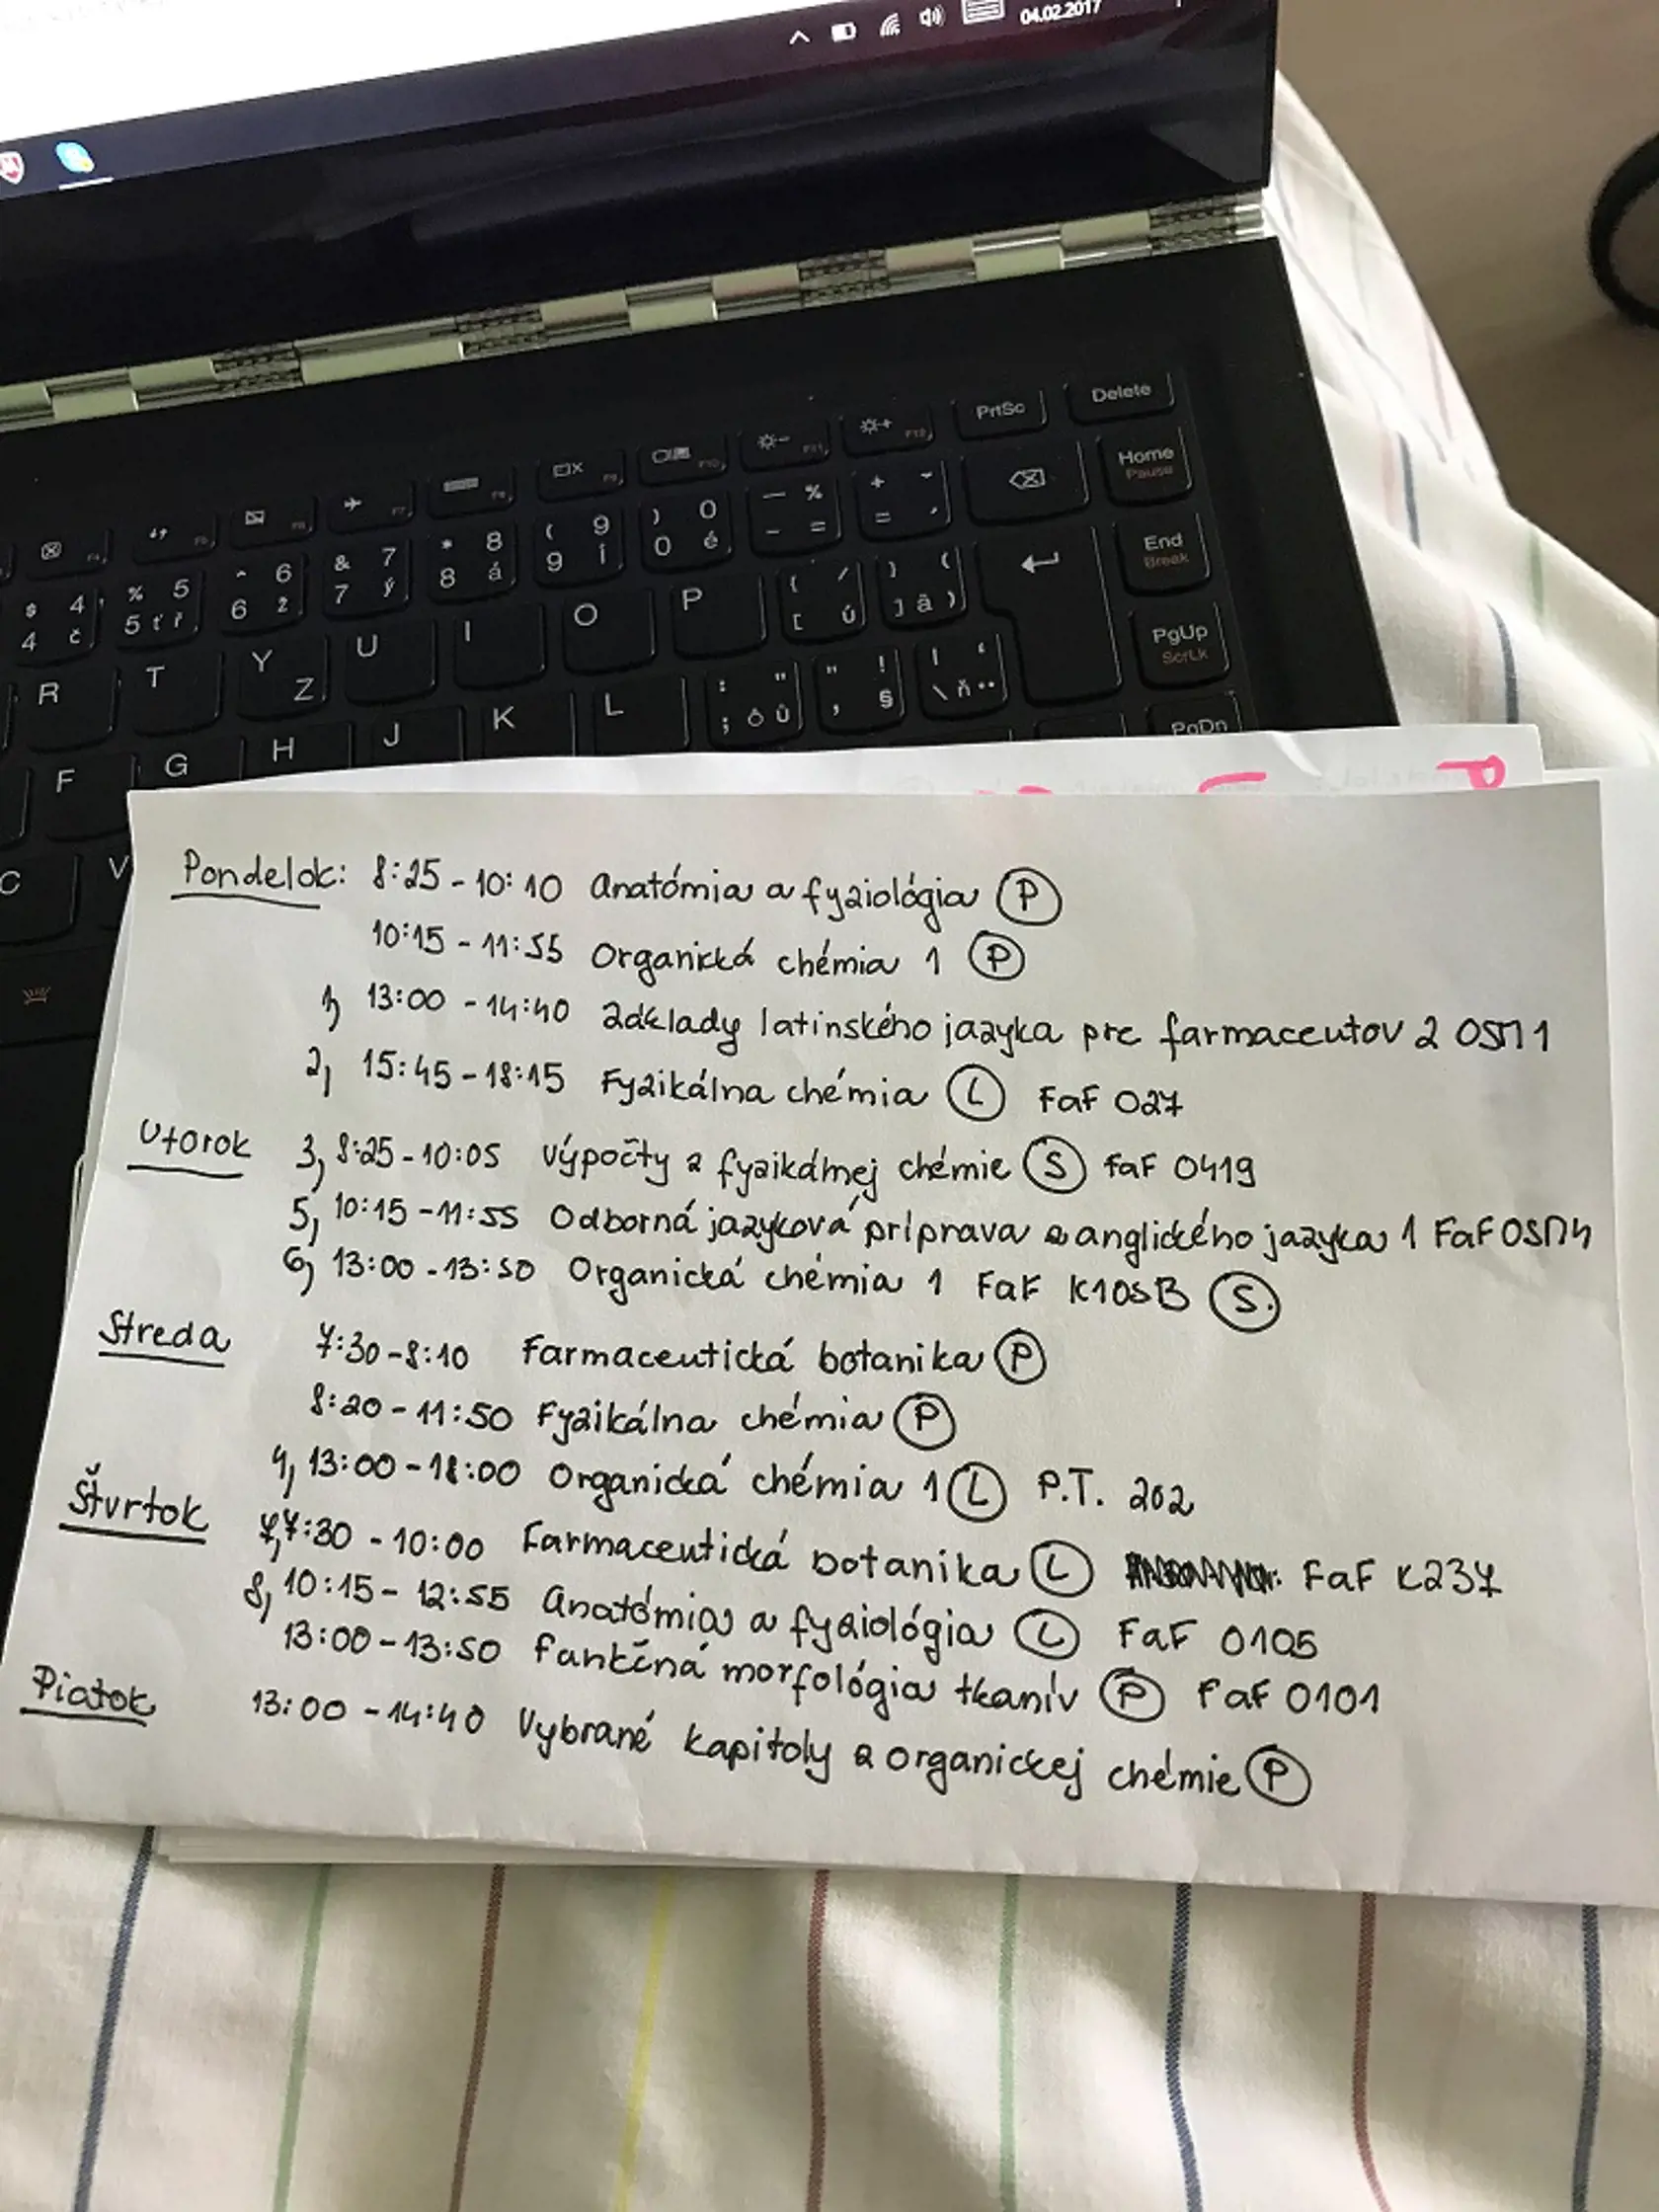 04.02.2017
PrtSc Delete
Home
Pause
$ 4 % 5 ^ 6 & 7 * 8 ( 9 ) 0 — % + ˇ
4 č 5 ť ř 6 ž 7 ý 8 á 9 í 0 é - = = ´
End
Break
R T Y Z U I O P { / [ ú } ( ] ä )
PgUp
ScrLk
F G H J K L : " ; ô ů " ! , § | \ ň ¨
PgDn
C V
Pondelok: 8:25 - 10:10 Anatómia a fyziológia P
10:15 - 11:55 Organická chémia 1 P
1, 13:00 - 14:40 základy latinského jazyka pre farmaceutov 2 OSП1
2, 15:45 - 18:15 Fyzikálna chémia L FaF 027
Utorok 3, 8:25 - 10:05 výpočty z fyzikálnej chémie S FaF 0419
5, 10:15 - 11:55 Odborná jazyková príprava z anglického jazyka 1 FaF OSП4
6, 13:00 - 13:50 Organická chémia 1 FaF K105B S.
Streda 7:30 - 8:10 Farmaceutická botanika P
8:20 - 11:50 Fyzikálna chémia P
4, 13:00 - 18:00 Organická chémia 1 L P.T. 202
Štvrtok 7, 7:30 - 10:00 Farmaceutická botanika L FaF K237
8, 10:15 - 12:55 Anatómia a fyziológia L FaF 0105
13:00 - 13:50 funkčná morfológia tkanív P FaF 0101
Piatok 13:00 - 14:40 Vybrané kapitoly z organickej chémie P